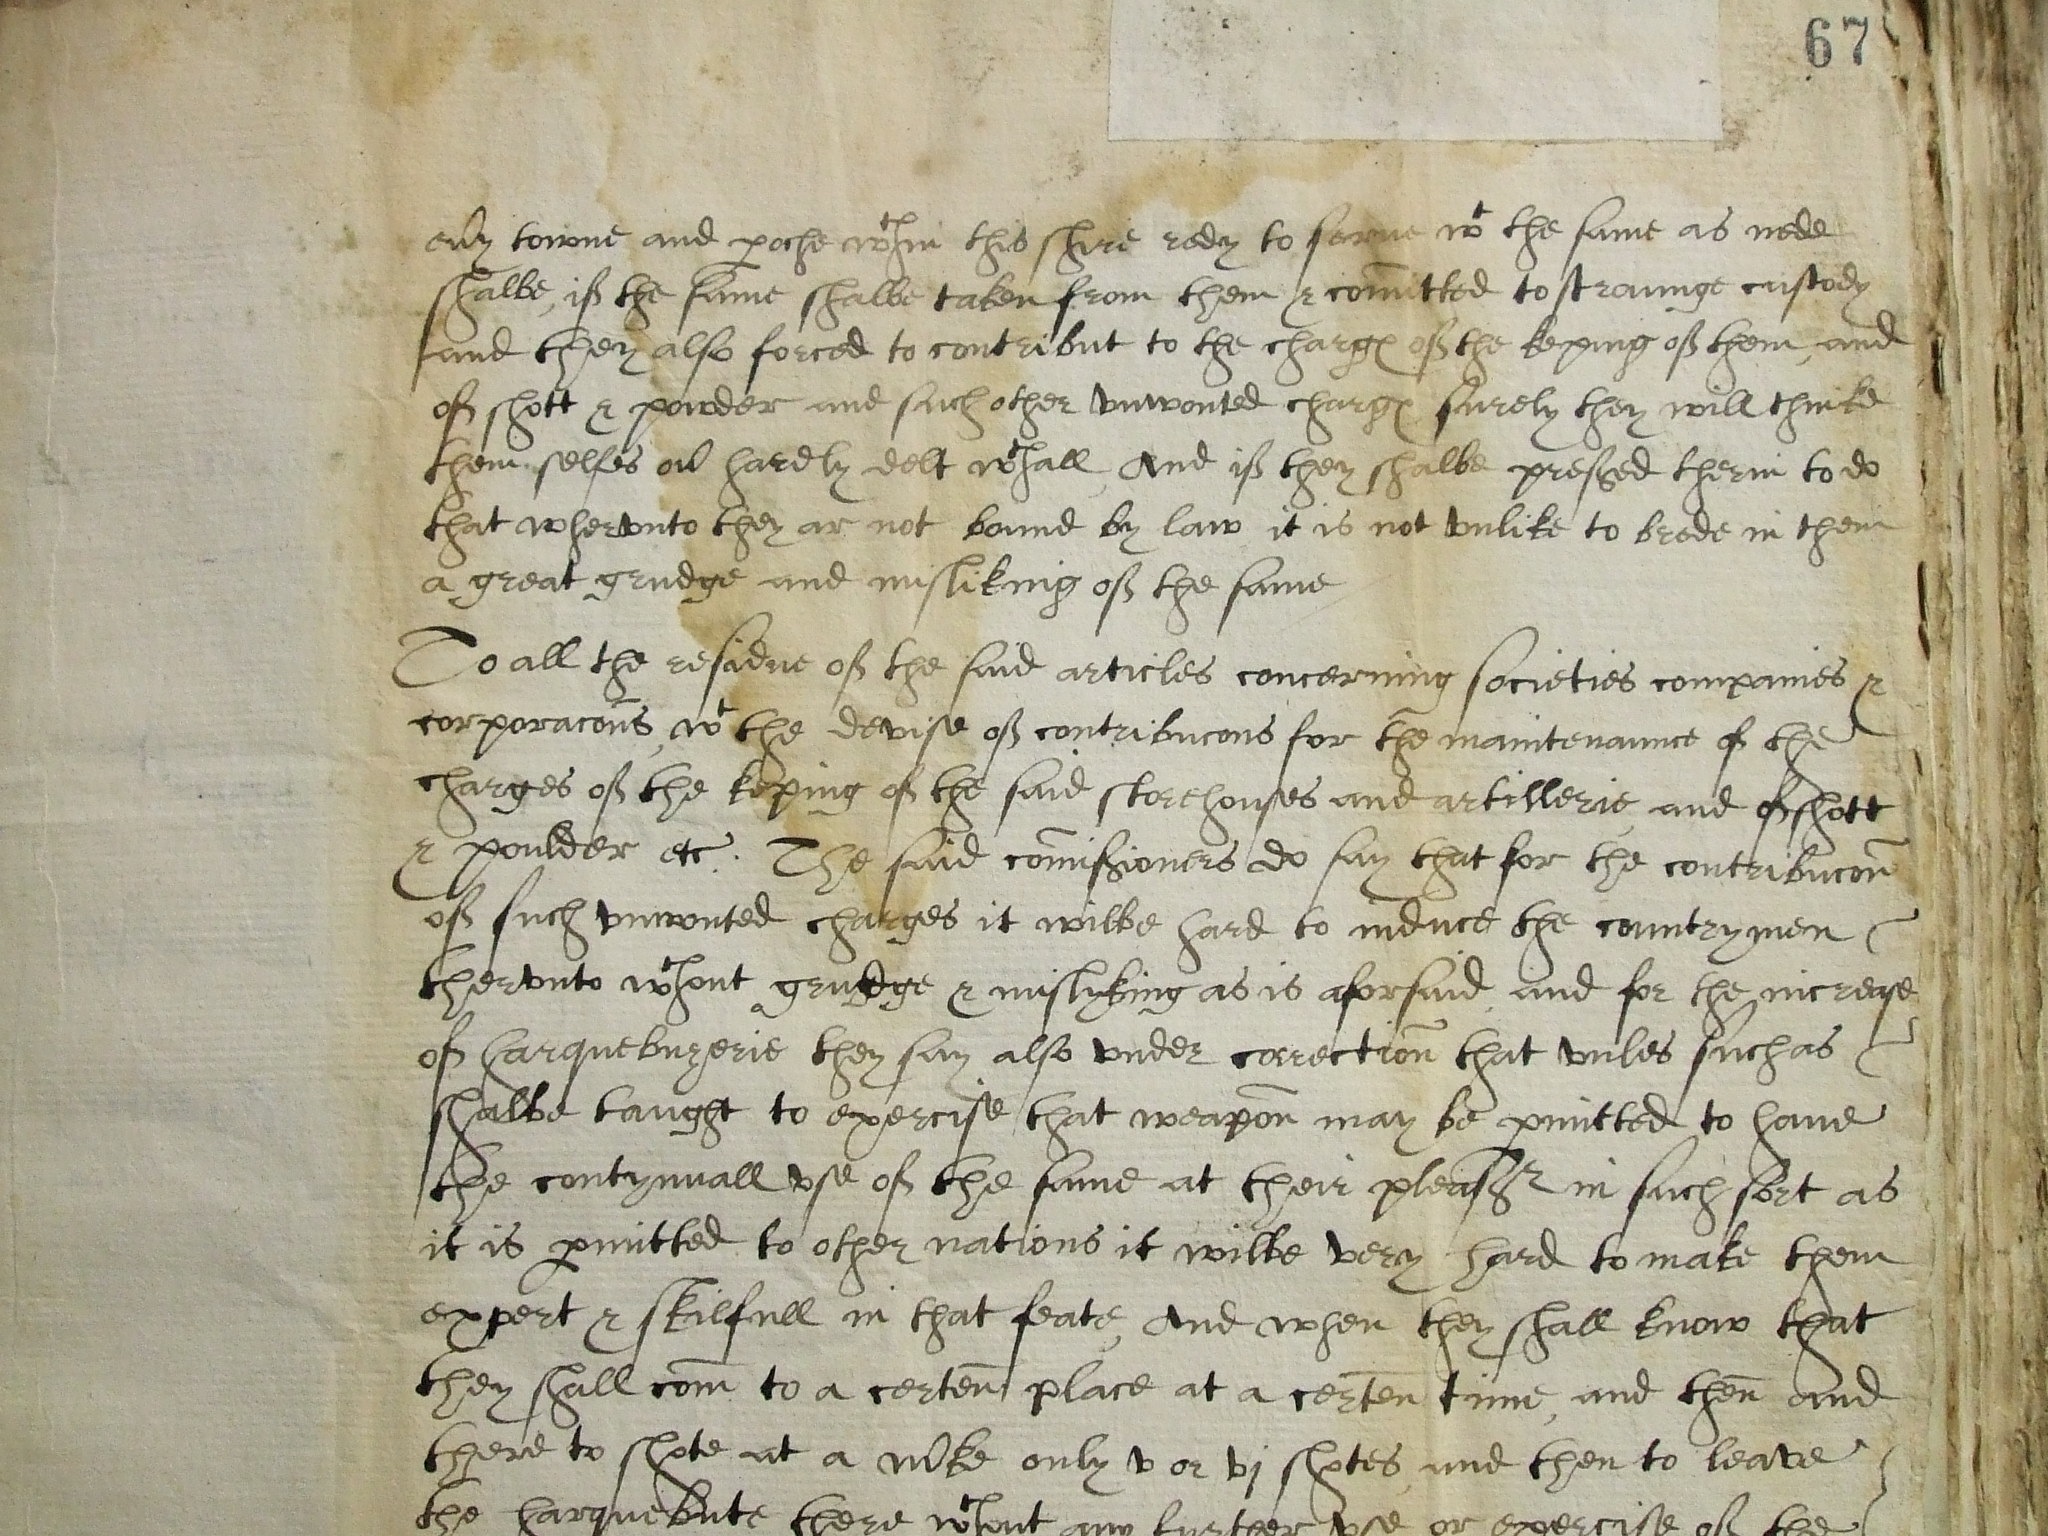 67
evͬy towne and ꝑoche wᵗhin this shire redy to serue wᵗ the same as nede
shalbe, if the same shalbe taken from them & com̄itted to straunge custody
and they also forced to contribut to the chargꝭ of the keping of them, and
of shott & powder and such other vnwonted chargꝭ surely they will thinke
them selfes ovͬ hardly delt wᵗhall, And if they shalbe pressed therin to do
that whervnto they ar not bound by law it is not vnlike to brede in them
a great grudge and misliking of the same
To all the residue of the said articles concerning societies companies &
corporacōns, wᵗ the devise of contribucons for the maintenaunce of the
charges of the keping of the said storehouses and artillerie, and of shott
& poulder etc. The said com̄issioners do say that for the contribucōn
of such vnwonted charges it wilbe hard to induce the countrymen
thervnto wᵗhout grudge & mislyking as is aforsaid, and for the increase
of harquebuzerie they say also vnder correctiōn that vnles such as
shalbe taught to exercise that weapōn may be ꝑmitted to haue
the contynuall vse of the same at their pleasʳ in such sort as
it is ꝑmitted to other nations it wilbe very hard to make them
expert & skilfull in that feate, And when they shall know that
they shall com̄ to a certen̄ place at a certen̄ time, and then̄ and
there to shote at a mͬke only v or vj shotes, and then to leave
the harquebute there wᵗhout any further vse or exercise of the